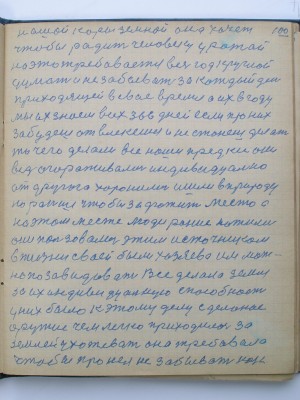 нашой кормиленной она хочет 100
чтобы радит человеку уражай
но это требоваетса вез год круглой
думат и не забеват за каждый ден
приходящей в свае времо а их в году
мы их знаем всех 365 дней если про них
забудем отвлекемса и не станем делат
то чего делали все наши предки они
вед огораживали индивидуално
от другого хоронили имли в природу
но ранше чтобы заложит место о
на этом месте люди ранше жили
они ползовалис этим источником
в жизни своей были хозяева им мож-
но позавидоват Все делала земля
за их индивидуалную способност
у них было к этому делу сделоное
оружие чем легко приходилос за
землей ухожеват она требовала
чтобы про нея не забыват нам